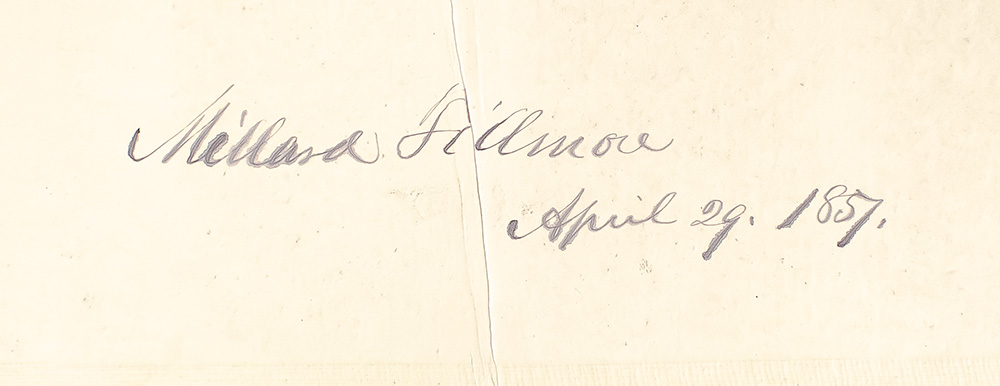 Millard Fillmore
April 29. 1851.